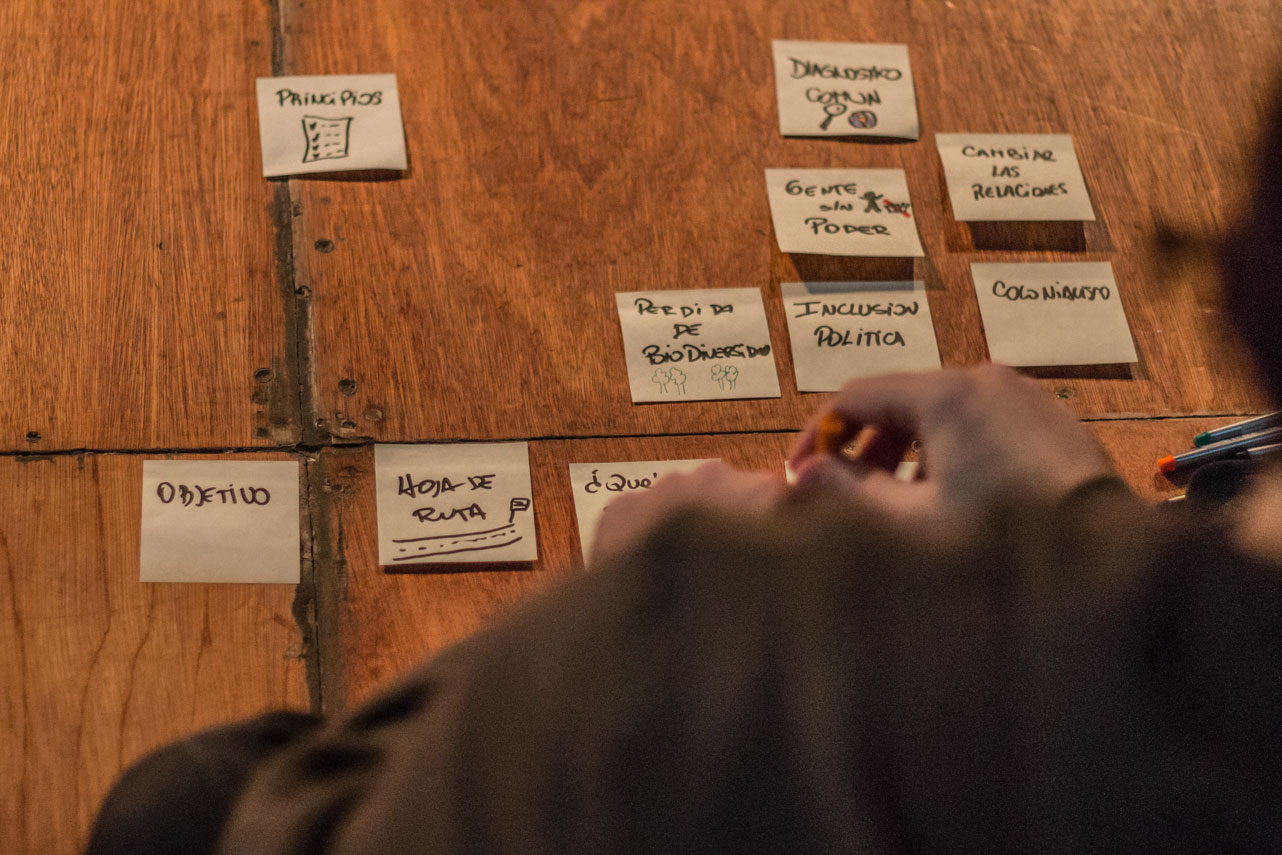 PRINCIPIOS
DIAGNOSTICO
COMUN
CAMBIAR
LAS
RELACIONES
GENTE
SIN
PODER
PERDIDA
DE
BIODIVERSIDAD
INCLUSION
POLITICA
COLONIALISMO
OBJETIVO
HOJA DE
RUTA
¿Que